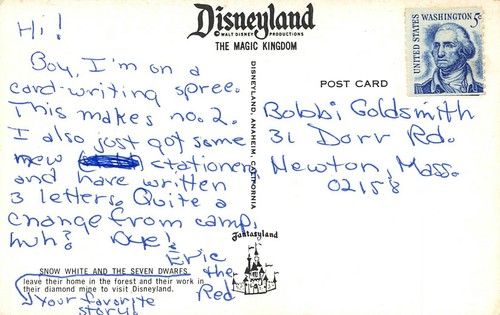 Disneyland
© WALT DISNEY PRODUCTIONS
THE MAGIC KINGDOM
Hi!
Boy, I'm on a
card-writing spree.
This makes no. 2.
I also just got some
new stationery
and have written
3 letters. Quite a
change from camp,
huh? Bye!
Eric
the
Red
SNOW WHITE AND THE SEVEN DWARFS
leave their home in the forest and their work in
their diamond mine to visit Disneyland.
Your favorite
story!
DISNEYLAND, ANAHEIM, CALIFORNIA
Fantasyland
POST CARD
UNITED STATES
WASHINGTON
5c
Bobbi Goldsmith
31 Dorr Rd.
Newton, Mass.
02158